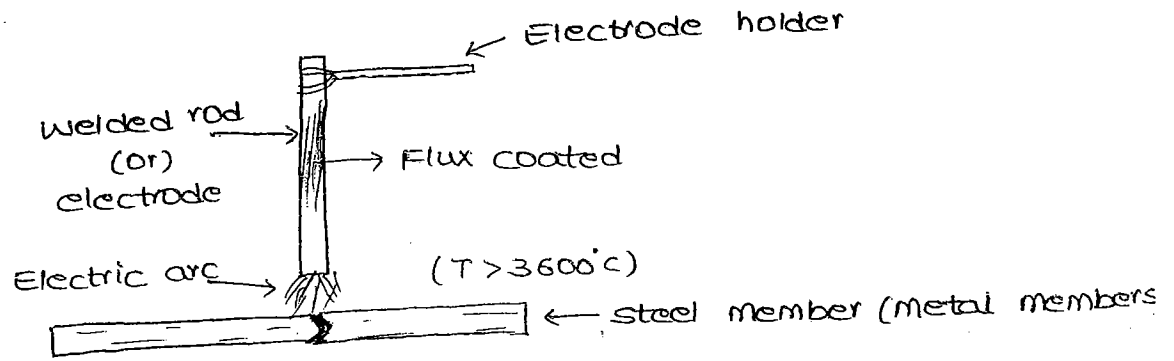 Electrode holder
Welded rod
(or)
electrode
Flux coated
Electric arc
(T > 3600°C)
Steel member (metal members